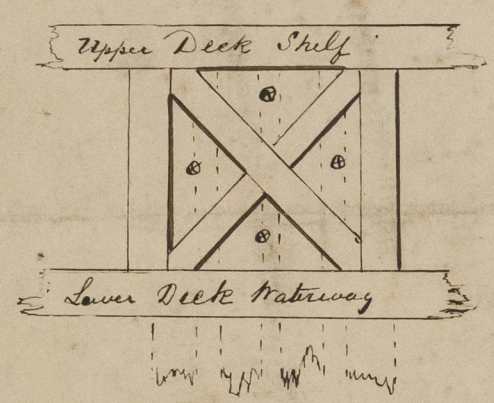 Upper Deck Shelf
Lower Deck Waterway